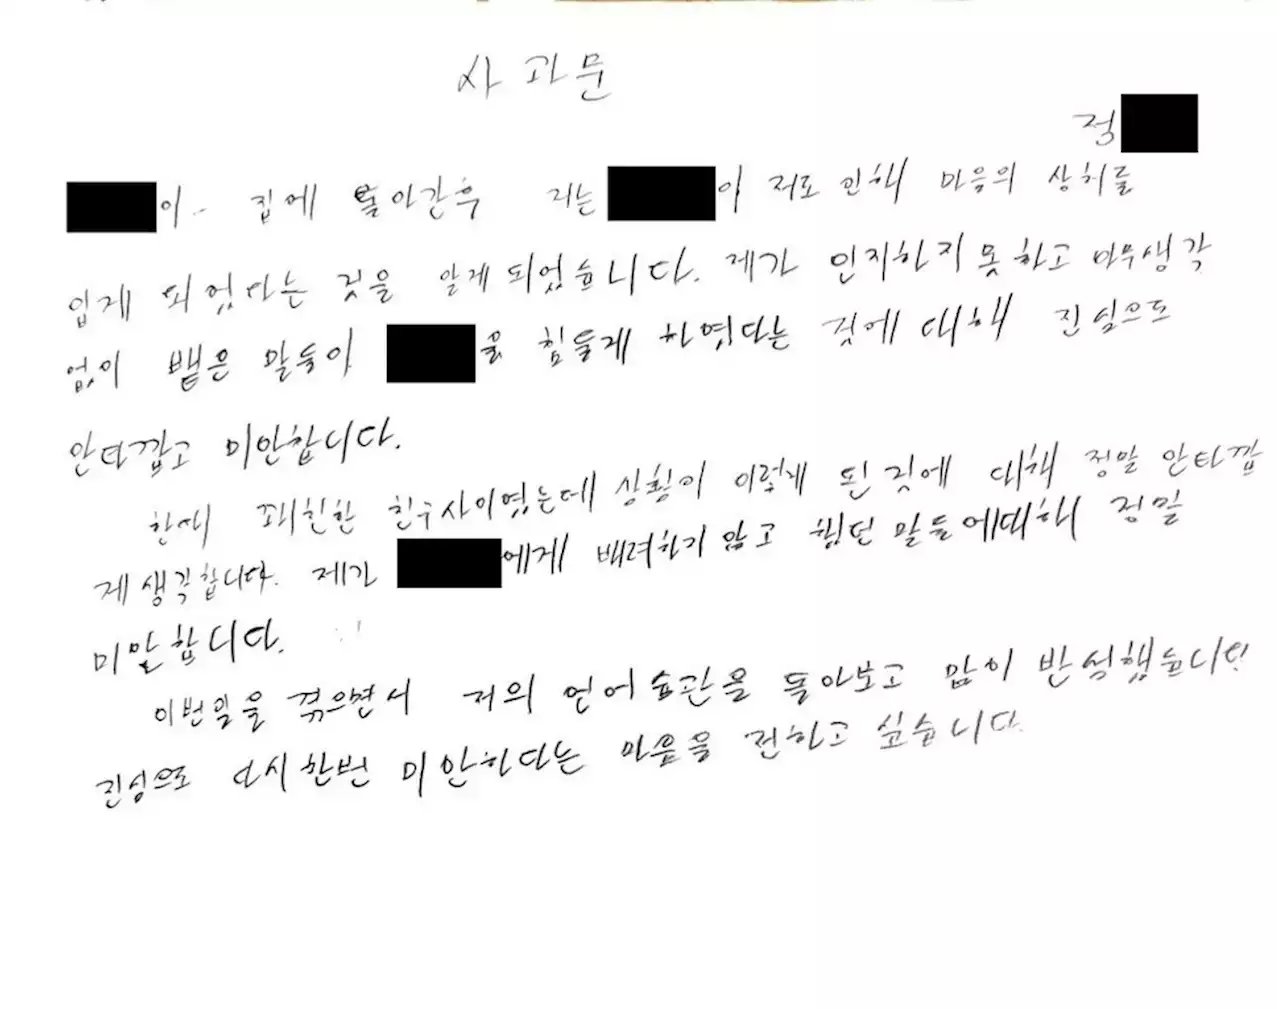 사과문
정
이 집에 돌아간후 저는 이 저로 인해 마음의 상처를
입게 되었다는 것을 알게 되었습니다. 제가 인지하지 못하고 아무생각
없이 뱉은 말들이 을 힘들게 하였다는 것에 대해 진심으로
안타깝고 미안합니다.
한때 꽤친한 친구사이였는데 상황이 이렇게 된 것에 대해 정말 안타깝
게 생각합니다. 제가 에게 배려하지 않고 했던 말들에대해 정말
미안합니다.
이번일을 겪으면서 저의 언어습관을 돌아보고 많이 반성했습니다
진심으로 다시한번 미안하다는 마음을 전하고 싶습니다.